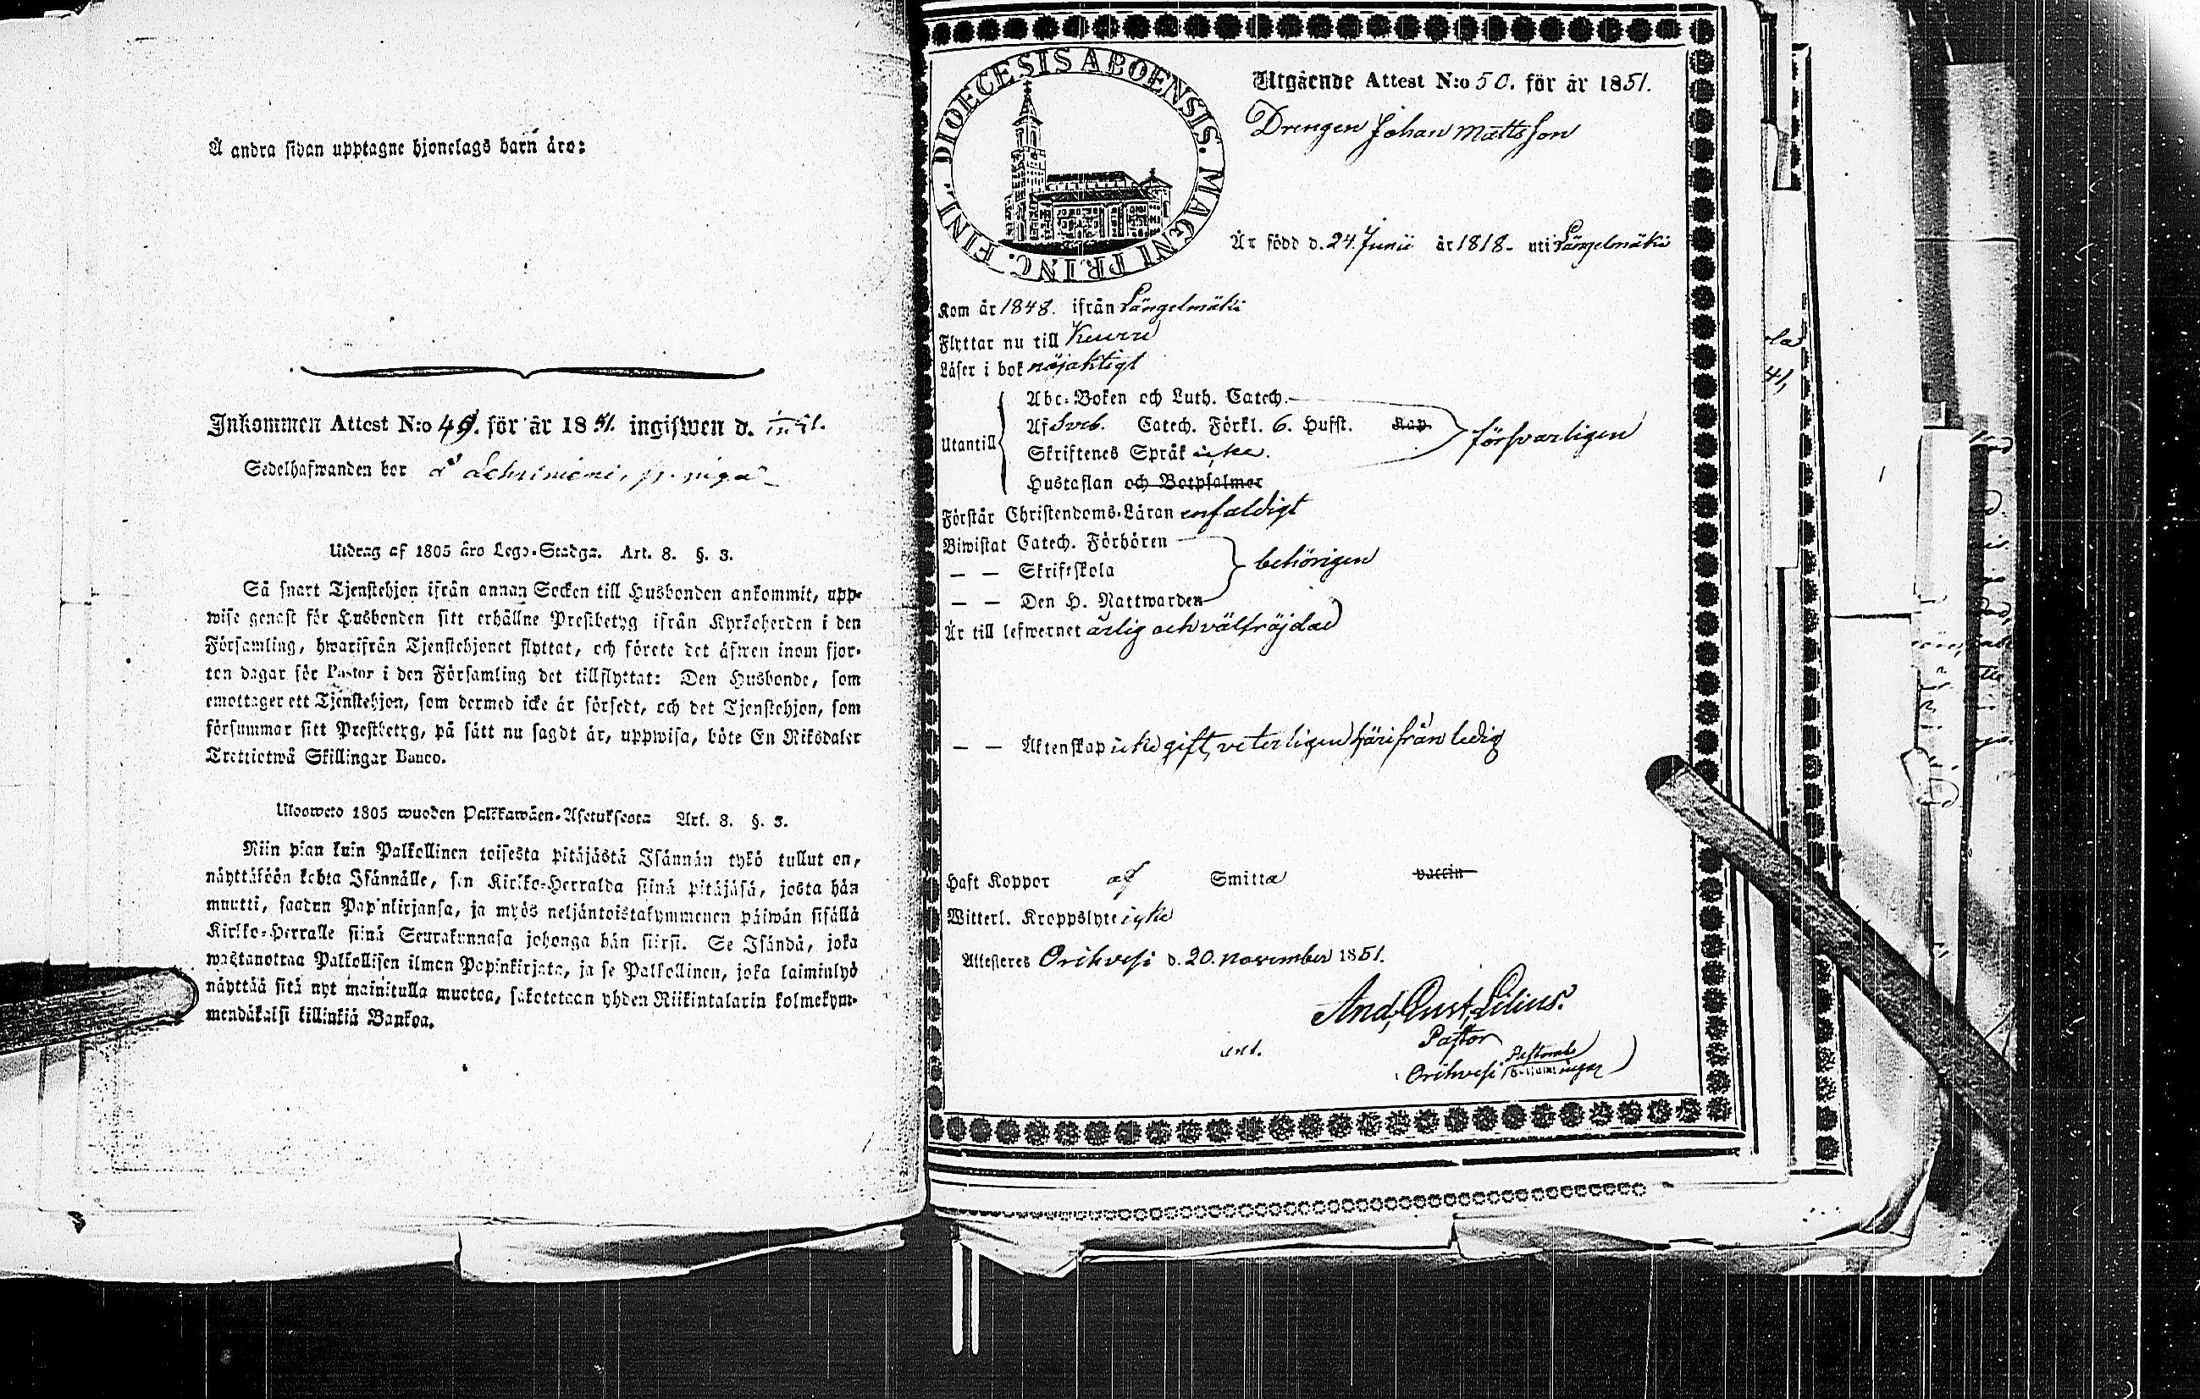 Å andra sidan upptagne hjonelags barn äro:
Inkommen Attest N:o 49. för år 1851. ingifwen d.
Sedelhafwanden bor å
Utdrag af 1805 års Lego-Stadga. Art. 8. §. 3.
Så snart Tjenstehjon ifrån annan Socken till Husbonden ankommit, upp-
wise genast för Husbonden sitt erhållne Prestbetyg ifrån Kyrkoherden i den
Församling, hwarifrån Tjenstehjonet flyttat, och förete det äfwen inom fjor-
ton dagar för Pastor i den Församling det tillflyttat: Den Husbonde, som
emottager ett Tjenstehjon, som dermed icke är försedt, och det Tjenstehjon, som
försummar sitt Prestbetyg, på sätt nu sagdt är, uppwisa, böte En Riksdaler
Trettiotwå Skillingar Banco.
Ulosweto 1805 wuoden Palkkawäen-Asetuksesta Art. 8. §. 3.
Niin pian kuin Palkollinen toisesta pitäjästä Isännän tykö tullut on,
näyttäköön kohta Isännälle, sen Kirkko-Herralda siinä pitäjäsä, josta hän
muutti, saadun Papinkirjansa, ja myös neljäntoistakymmenen päiwän sisällä
Kirkko-Herralle siinä Seurakunnasa johonga hän siirsi. Se Isändä, joka
wastanottaa Palkollisen ilman Papinkirjata, ja se Palkollinen, joka laiminlyö
näyttää sitä nyt mainitulla muotoa, sakotetaan yhden Riikintalarin kolmekym-
mendäkaksi killinkiä Bankoa.
DIOECESIS ABOENSIS. MAGNI PRINC. FINL.
Utgående Attest N:o 50. för år 1851.
Drengen Johan Mattsson
Är född d. 24. Junii år 1818. uti Längelmäki
Kom år 1848. ifrån Längelmäki
Flyttar nu till Keuru
Läser i bok nöjaktigt
Abc-Boken och Luth. Catech.
Utantill Af Sveb. Catech. Förkl. 6. Hufst. Kap försvarligen
Skriftenes Språk icke.
Hustaflan och Botpsalmer
Förstår Christendoms-Läran enfaldigt
Biwistat Catech. Förhören
— — Skriftskola behörigen
— — Den H. Nattwarden
Är till lefwernet ärlig och välfräjdad
— — Äktenskap icke gift, veterligen härifrån ledig
Haft Koppor af Smitta vaccin
Witterl. Kroppslyte icke
Attesteres Orihvesi d. 20. november 1851.
And, Gust, Lilius.
Pastor
Orihvesi